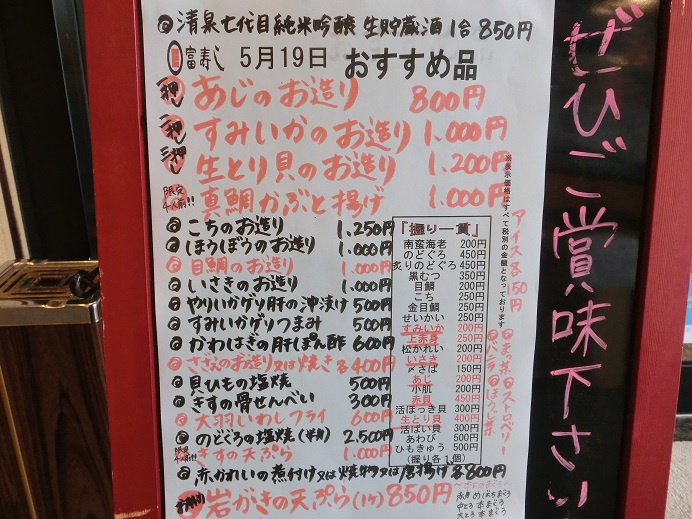 清泉七代目純米吟醸 生貯蔵酒 1合 850円
富寿し 5月19日 おすすめ品
一押し あじのお造り 800円
二押し すみいかのお造り 1.000円
三押し 生とり貝のお造り 1.200円
限定4人前!! 真鯛かぶと揚げ 1.000円
こちのお造り 1.250円
ほうぼうのお造り 1.000円
目鯛のお造り 1.000円
いさきのお造り 1.000円
やりいかゲソ肝の沖漬け 500円
すみいかゲソつまみ 500円
かわはぎの肝ぽん酢 600円
さざえのお造り又は焼き 各400円
貝ひもの塩焼 500円
きすの骨せんべい 300円
大羽いわしフライ 600円
のどぐろの塩焼(半身) 2.500円
きすの天ぷら 1.000円
赤かれいの煮付け又は焼物又は唐揚げ 各800円
岩がきの天ぷら(1ヶ) 850円
「握り一貫」
南蛮海老 200円
のどぐろ 450円
炙りのどぐろ 450円
黒むつ 350円
目鯛 200円
こち 250円
金目鯛 250円
せいかい 250円
すみいか 200円
上赤身 250円
松かれい 200円
いさき 200円
〆さば 150円
あじ 200円
小肌 200円
赤貝 450円
活ほっき貝 300円
生とり貝 400円
活ばい貝 300円
あわび 500円
ひもきゅう 500円
(握り各1個)
※表示価格はすべて税別の金額となっております
アイス各150円
まっ茶 ストロベリー
バニラ ほうじ茶
赤身 めばちまぐろ
中とろ 本まぐろ
大とろ 本まぐろ
ぜひご賞味下さい